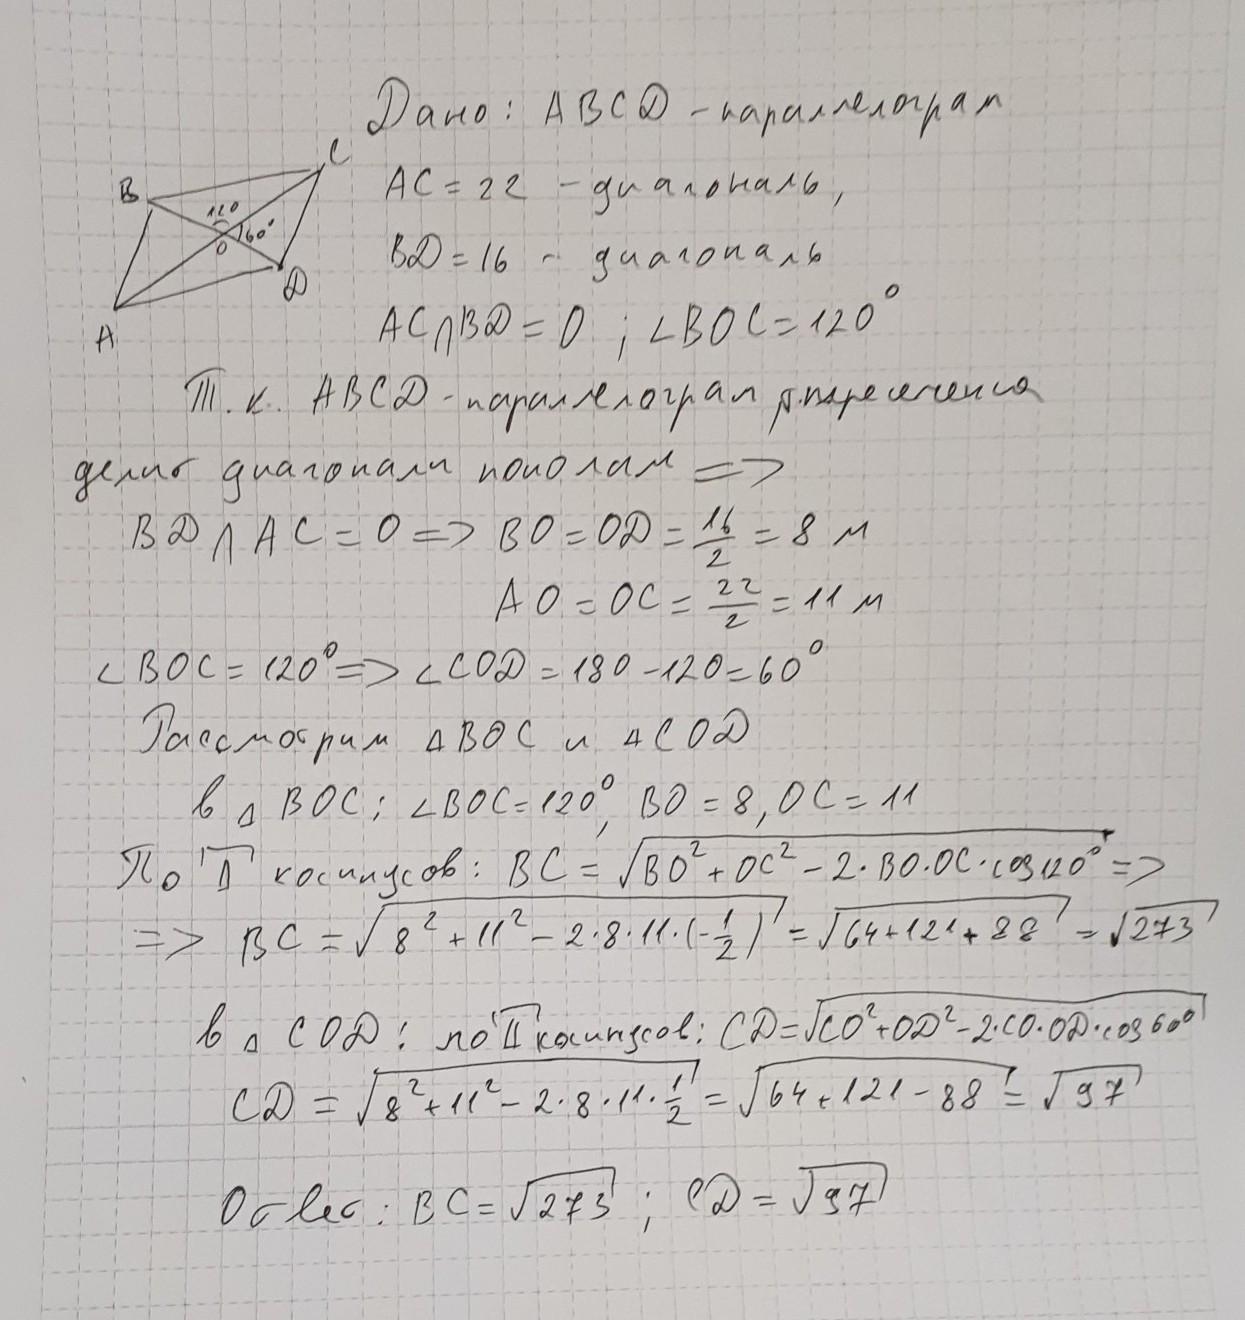 Дано: ABCD - параллелограм
AC = 22 - диагональ,
BD = 16 - диагональ
AC∩BD = O ; ∠BOC = 120°
B
C
120
60°
O
D
A
Т.к. ABCD - параллелограм т.пересечения
делит диагонали пополам =>
BD ∩ AC = O => BO = OD = 16/2 = 8 м
AO = OC = 22/2 = 11 м
∠BOC = 120° => ∠COD = 180 - 120 = 60°
Рассмотрим △BOC и △COD
в △ BOC: ∠BOC = 120°, BO = 8, OC = 11
По Т косинусов: BC = √(BO² + OC² - 2·BO·OC·cos120°) =>
=> BC = √(8² + 11² - 2·8·11·(-1/2)) = √(64 + 121 + 88) = √273
в △ COD: по Т косинусов: CD = √(CO² + OD² - 2·CO·OD·cos60°)
CD = √(8² + 11² - 2·8·11·1/2) = √(64 + 121 - 88) = √97
Ответ: BC = √273 ; CD = √97